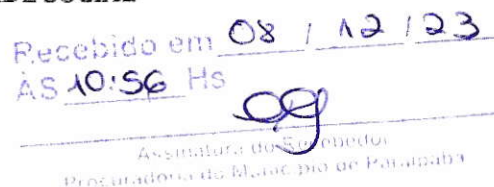 Recebido em 08 / 12 / 23
ÀS 10:56 Hs
Assinatura do Recebedor
Procuradoria do Município de Paraipaba